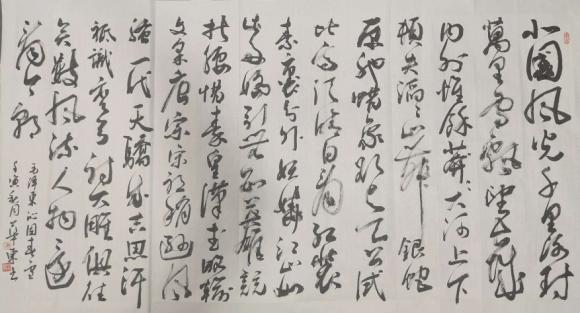 北国風光千里冰封
萬里雪飄望长城
内外惟餘莽莽大河上下
頓失滔滔山舞銀蛇
原馳蠟象欲与天公試
比高須晴日看红裝
素裹分外妖嬈江山如
此多嬌引无数英雄競
折腰惜秦皇漢武略輸
文采唐宗宋祖稍遜风
骚一代天驕成吉思汗
祇識弯弓射大雕俱往
矣数风流人物还
看今朝
毛泽東沁园春雪
壬寅秋月